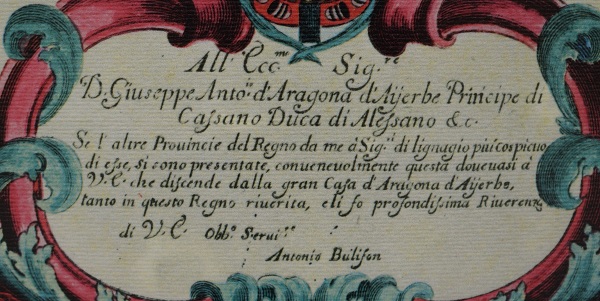 All' Ecc.mo Sig.re
D. Giuseppe Anto.o d'Aragona d'Aÿerbe Principe di
Cassano Duca di Alessano &c.
Se l'altre Provincie del Regno da me à Sig.ri di lignagio più cospicuo
di esse, si sono presentate, convenevolmente questa doveuasi à
V.E. che discende dalla gran Casa d'Aragona d'Aÿerbe,
tanto in questo Regno riverita, e li fo profondissima Riverenza
di V.E. Obb.o Servi.re
Antonio Bulifon